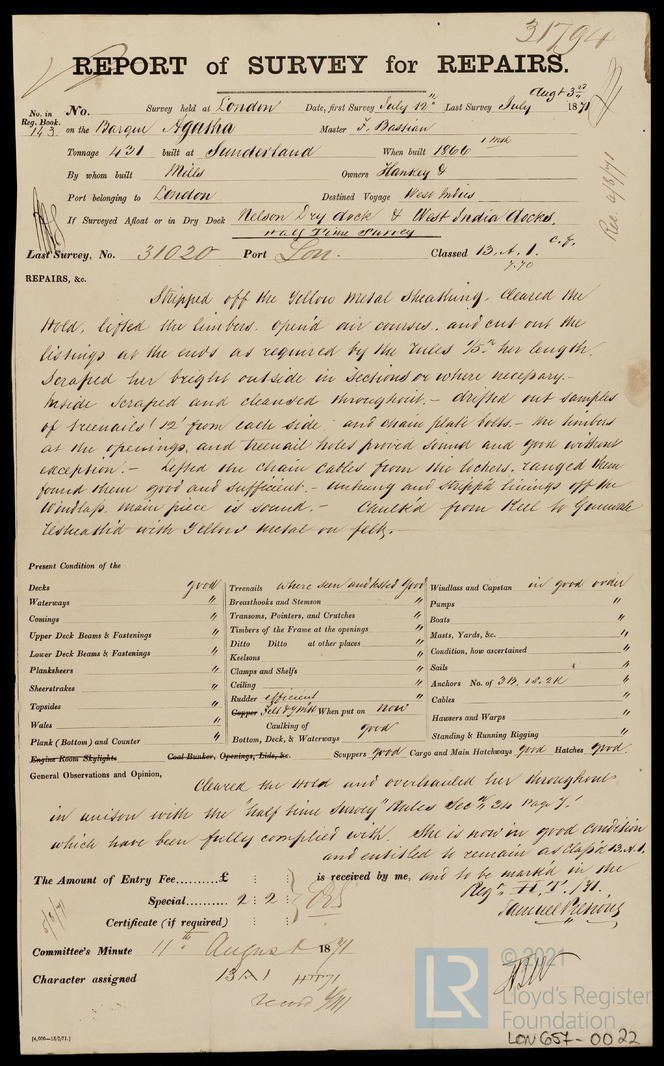 31794
REPORT of SURVEY for REPAIRS.
No. in Reg. Book. 143
No. Survey held at London Date, first Survey July 12th Last Survey July Augt 3rd 1871
on the Barque Agatha Master F. Bassian
Tonnage 431 built at Sunderland When built 1866
By whom built Mills Owners Hankey &
Port belonging to London Destined Voyage West Indies
If Surveyed Afloat or in Dry Dock Nelson Dry dock & West India docks,
Half Time Survey
Rec. 4/8/71
Last Survey, No. 31020 Port Lon. Classed 13. A. 1.
7.70
REPAIRS, &c.
Stripped off the Yellow Metal Sheathing. Cleared the
Hold, lifted the limbers, open'd air courses, and cut out the
listings at the ends as required by the Rules 1/5th her length.
Scraped her bright outside in sections or where necessary.—
Inside scraped and cleansed throughout.— drifted out samples
of treenails! 12' from each side, and chain plate bolts.— the timbers
at the openings, and treenail holes proved sound and good without
exception.— Lifted the chain cables from the lockers, ranged them
found them good and sufficient.— unhung and stripp'd linings off the
Windlass, main piece is sound.— Caulk'd from Keel to Gunwale
resheath'd with Yellow Metal on felt.—
Present Condition of the
Decks good
Waterways "
Comings "
Upper Deck Beams & Fastenings "
Lower Deck Beams & Fastenings "
Planksheers "
Sheerstrakes "
Topsides "
Wales "
Plank (Bottom) and Counter "
Engine Room Skylights Coal Bunker, Openings, Lids, &c.
Treenails where seen and tested Good
Breasthooks and Stemson "
Transoms, Pointers, and Crutches "
Timbers of the Frame at the openings "
Ditto Ditto at other places "
Keelsons "
Clamps and Shelfs "
Ceiling "
Rudder efficient "
Copper Felt & YM When put on now
Caulking of
Bottom, Deck, & Waterways good
Scuppers good Cargo and Main Hatchways good Hatches good.
Windlass and Capstan in good order
Pumps "
Boats "
Masts, Yards, &c. "
Condition, how ascertained "
Sails "
Anchors No. of 3B. 1S. 2K "
Cables "
Hawsers and Warps "
Standing & Running Rigging "
General Observations and Opinion,
Cleared the Hold and overhauled her throughout
in unison with the "half time Survey" Rules Secn 34 Page 7.'
which have been fully complied with. She is now in good condition
and entitled to remain as Class'd 13. A. 1.
The Amount of Entry Fee..........£ : : is received by me, and to be mark'd in the
Special.......... 2 : 2 : Regr H. T. /71.
Certificate (if required) : :
Committee's Minute 11th August 1871
Character assigned 13A1 HT71
record
[4,000—18/2/71.]
LR
© 2021
Lloyd's Register
Foundation
LON 657-0022